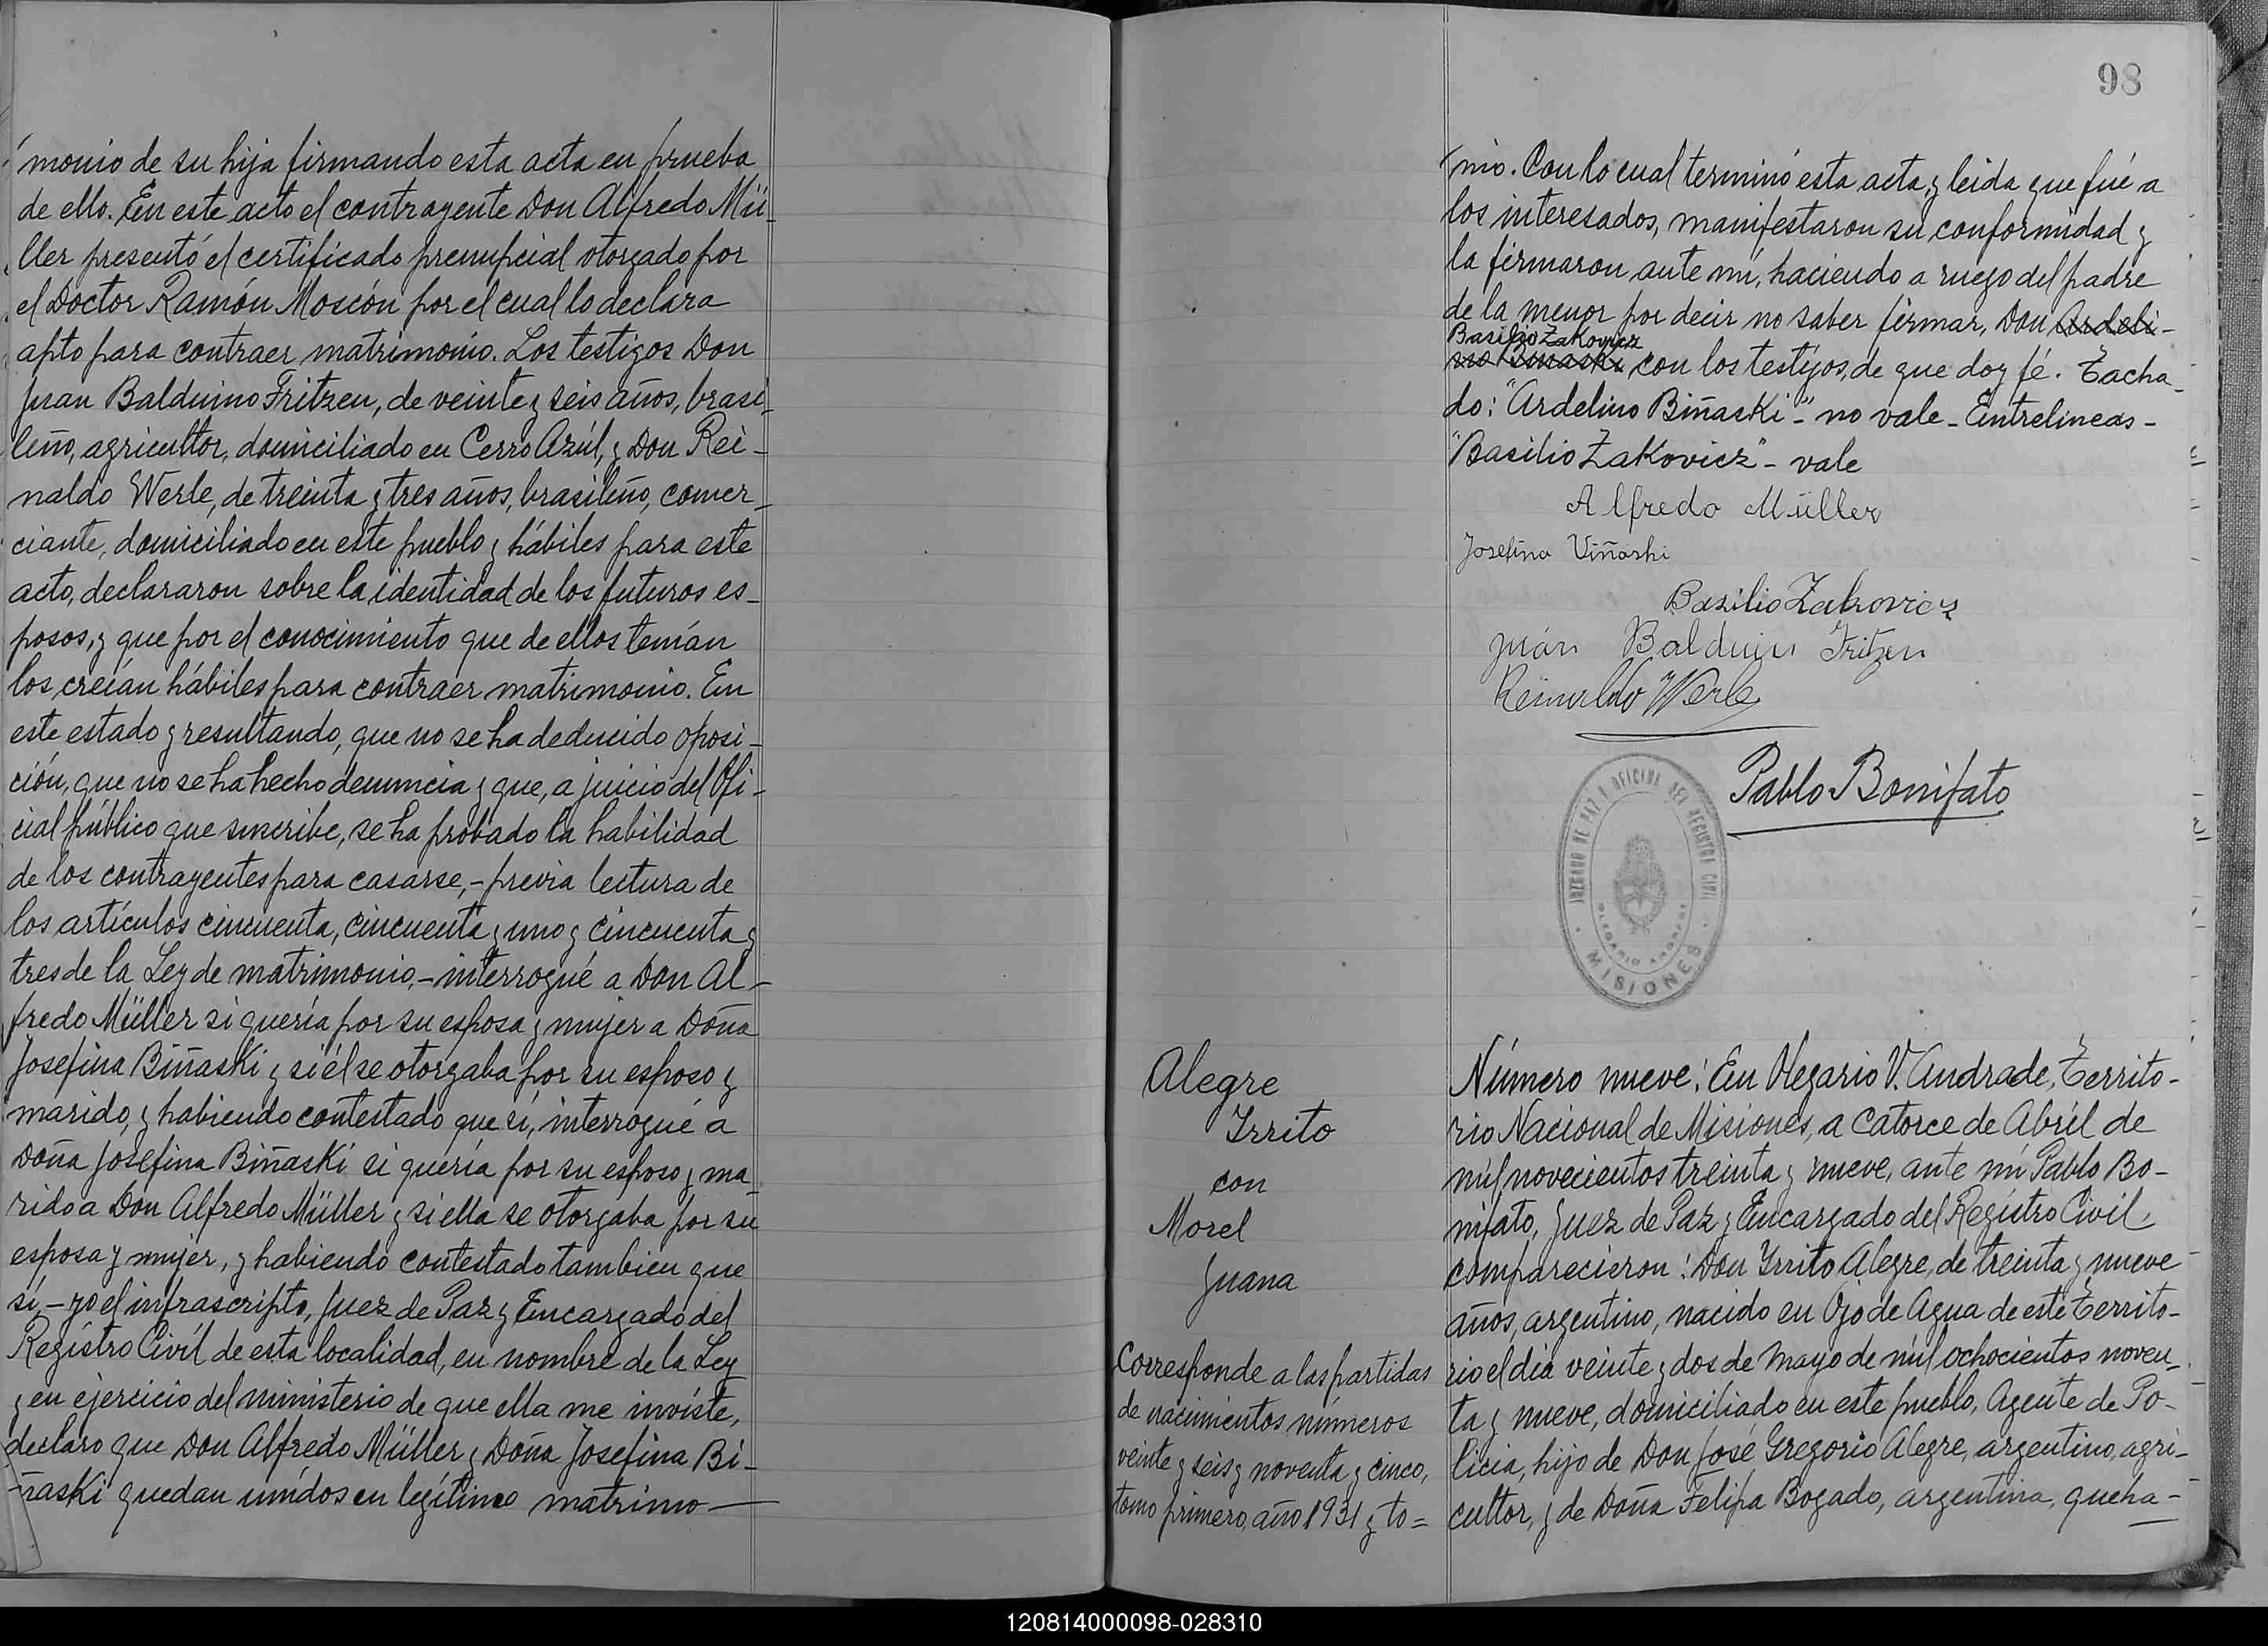 monio de su hija firmando esta acta en prueba
de ello. En este acto el contrayente Don Alfredo Mü-
ller presentó el certificado prenupcial otorgado por
el Doctor Ramón Moscón por el cual lo declara
apto para contraer matrimonio. Los testigos Don
Juan Balduino Fritzen, de veinte y seis años, brasi-
leño, agricultor, domiciliado en Cerro Azúl, y Don Rei-
naldo Werle, de treinta y tres años, brasileño, comer-
ciante, domiciliado en este pueblo y hábiles para este
acto, declararon sobre la identidad de los futuros es-
posos, y que por el conocimiento que de ellos tenían
los creían hábiles para contraer matrimonio. En
este estado y resultando, que no se ha deducido oposi-
ción, que no se ha hecho denuncia y que, a juicio del Ofi-
cial público que suscribe, se ha probado la habilidad
de los contrayentes para casarse,- previa lectura de
los artículos cincuenta, cincuenta y uno y cincuenta y
tres de la Ley de matrimonio,- interrogué a Don Al-
fredo Müller si quería por su esposa y mujer a Doña
Josefina Biñaski y si él se otorgaba por su esposo y
marido, y habiendo contestado que sí, interrogué a
Doña Josefina Biñaski si quería por su esposo y ma-
rido a Don Alfredo Müller y si ella se otorgaba por su
esposa y mujer, y habiendo contestado tambien que
sí,- yo el infrascripto, Juez de Paz y Encargado del
Registro Civíl de esta localidad, en nombre de la Ley
y en ejercicio del ministerio de que ella me inviste,
declaro que Don Alfredo Müller y Doña Josefina Bi-
ñaski quedan unídos en legítimo matrimo-
98
nio. Con lo cual terminó esta acta, y leída que fué a
los interesados, manifestaron su conformidad y
la firmaron ante mí, haciendo a ruego del padre
de la menor por decir no saber firmar, Don Ardeli-
Basilio Zakovicz
no Biñaski con los testigos, de que doy fé. Tacha-
do: "Ardelino Biñaski"- no vale- Entrelineas-
"Basilio Zakovicz"- vale
Alfredo Müller
Josefina Viñaski
Basilio Zakovicz
Juán Balduin Fritzen
Reinaldo Werle
Pablo Bonifato
JUZGADO DE PAZ Y OFICINA DEL REGISTRO CIVIL
MISIONES
Alegre
Yrrito
con
Morel
Juana
Corresponde a las partidas
de nacimientos números
veinte y seis y noventa y cinco,
tomo primero, año 1931 y to=
Número nueve: En Olegario V. Andrade, Territo-
rio Nacional de Misiones, a catorce de Abril de
míl novecientos treinta y nueve, ante mí Pablo Bo-
nifato, Juez de Paz y Encargado del Registro Civíl,
comparecieron: Don Yrrito Alegre, de treinta y nueve
años, argentino, nacido en Ojo de Agua de este Territo-
rio el día veinte y dos de Mayo de míl ochocientos noven-
ta y nueve, domiciliado en este pueblo, Agente de Po-
licia, hijo de Don José Gregorio Alegre, argentino, agri-
cultor, y de Doña Felipa Bogado, argentina, queha-
120814000098-028310